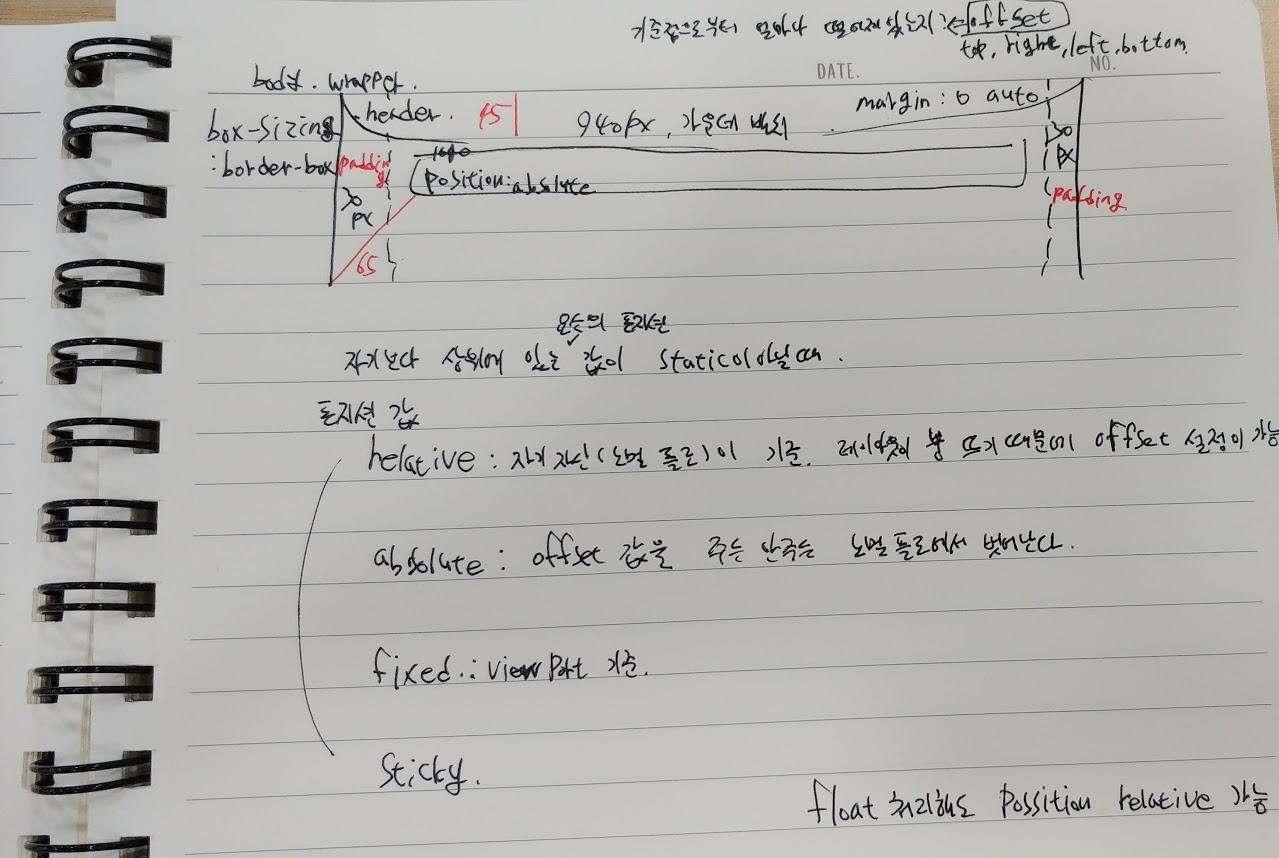 기준점으로부터 얼마나 떨어져있는지:<=offset
top, right, left, bottom.
DATE.
NO.
body. wrapper.
header. 45
940px, 가운데 배치
margin: 0 auto
box-sizing
:border-box
padding
30
px
position:absolute
30
px
padding
65
요소의 포지션
자기보다 상위에 있는 값이 static이아닐때.
포지션 값
relative : 자기 자신(노멀 플로)이 기준. 레이아웃이 붕 뜨기 때문에 offset 설정이 가능
absolute : offset 값을 주든 안주든 노멀플로에서 벗어난다.
fixed : viewport 기준.
Sticky.
float 처리해도 possition relative 가능